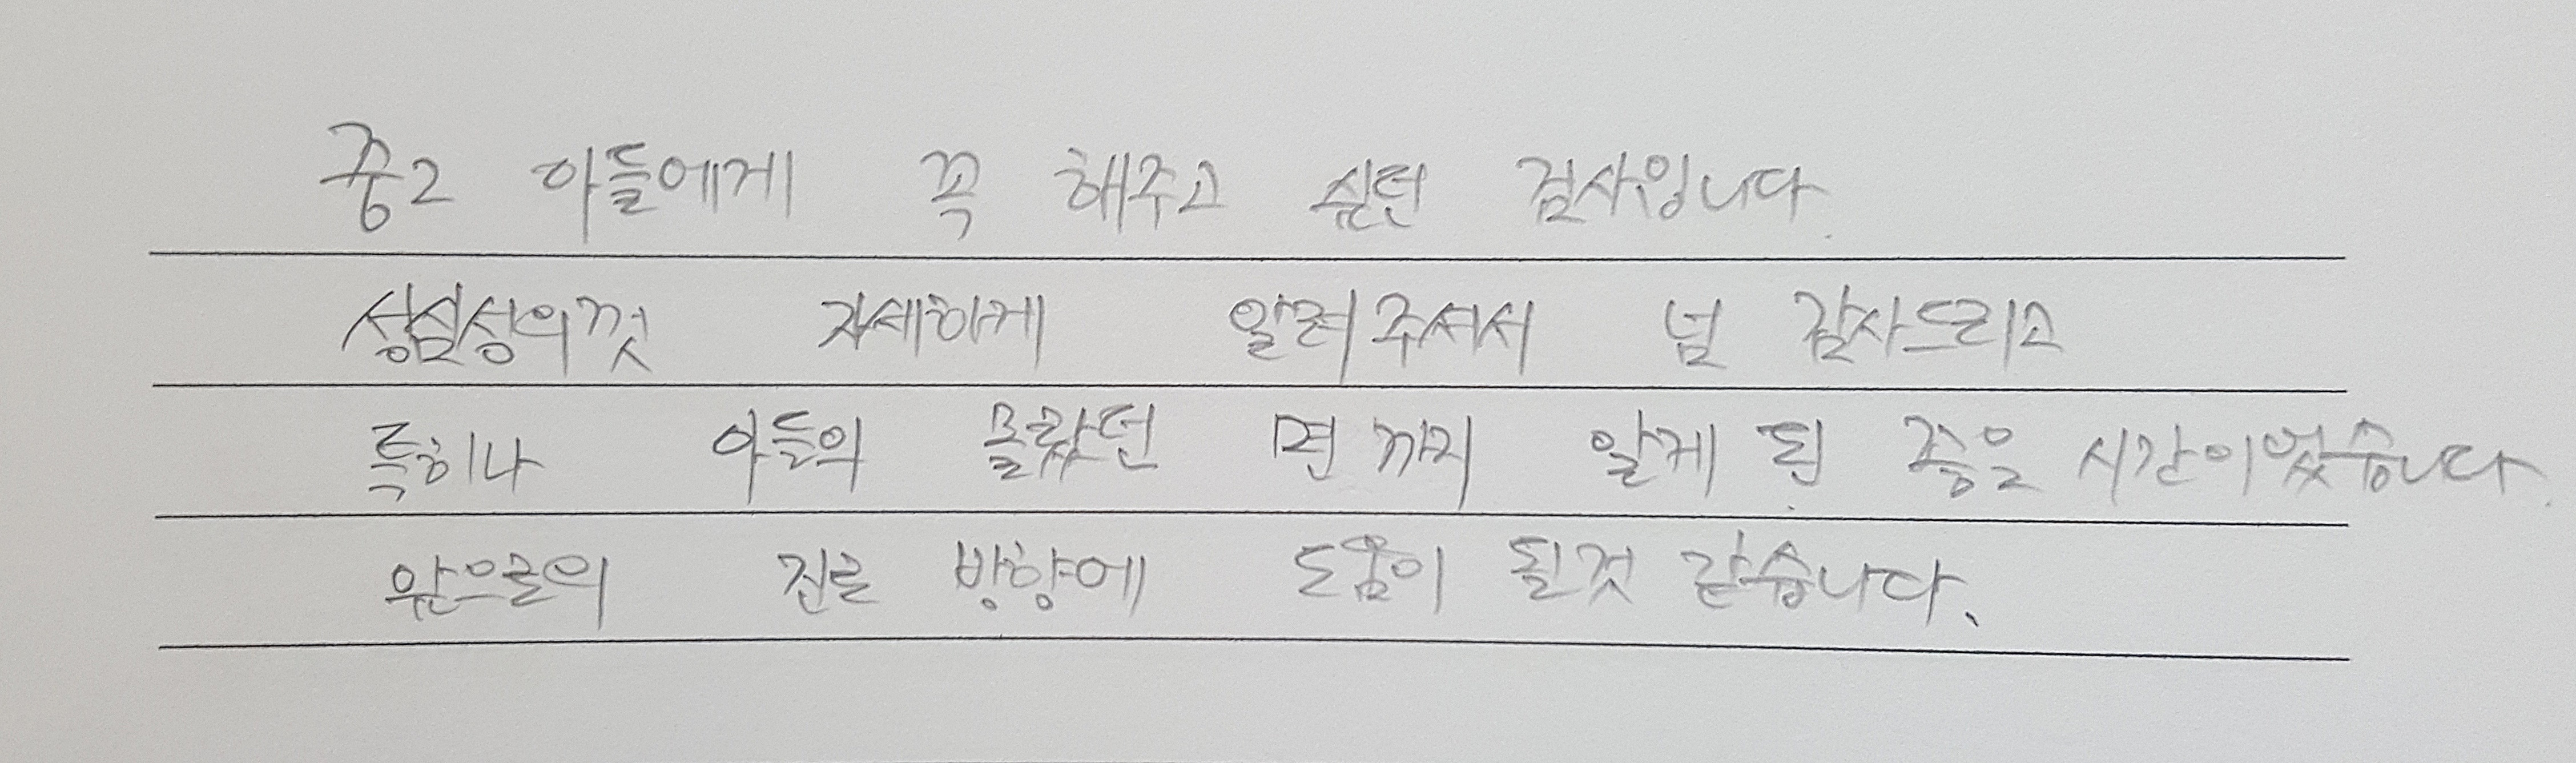 중2 아들에게 꼭 해주고 싶던 검사입니다.
성심성의껏 자세하게 알려주셔서 넘 감사드리고
특히나 아들의 몰랐던 면까지 알게 된 좋은 시간이었습니다.
앞으로의 진로 방향에 도움이 될것 같습니다.